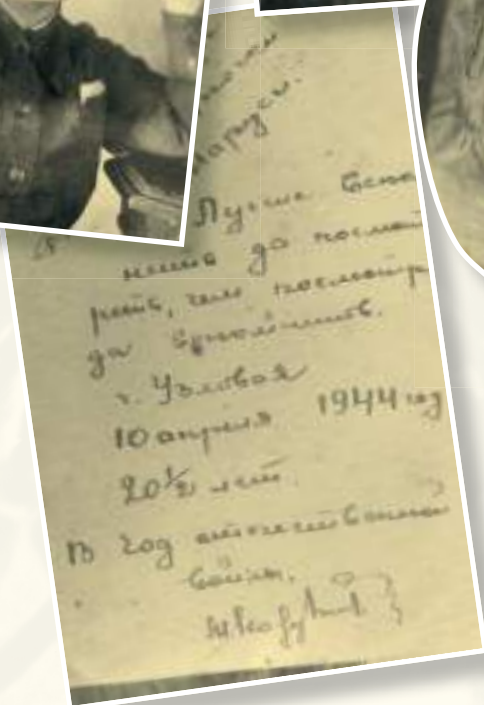 Маруси.
Лучше вспом
нить да посмот
реть, чем посмотр
да вспомнить.
г. Узловая
10 апреля 1944 год
20½ лет.
В год отечественной
войны.